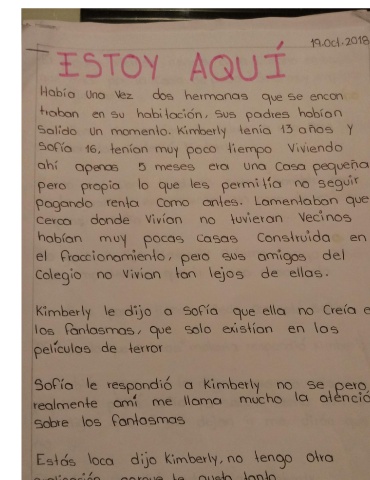 19.Oct.2018
ESTOY AQUÍ
Había una vez dos hermanas que se encon
traban en su habitación, sus padres habían
salido un momento. Kimberly tenía 13 años y
Sofía 16, tenían muy poco tiempo viviendo
ahí apenas 5 meses era una casa pequeña
pero propia lo que les permitía no seguir
pagando renta como antes. Lamentaban que
cerca donde vivían no tuvieran vecinos
habían muy pocas casas construida en
el fraccionamiento, pero sus amigos del
colegio no vivían tan lejos de ellas.
Kimberly le dijo a Sofía que ella no creía e
los fantasmas, que solo existían en las
películas de terror
Sofía le respondió a Kimberly no se pero
realmente amí me llama mucho la atenció
sobre los fantasmas
Estás loca dijo Kimberly, no tengo otra
explicación porque te gusta tanto